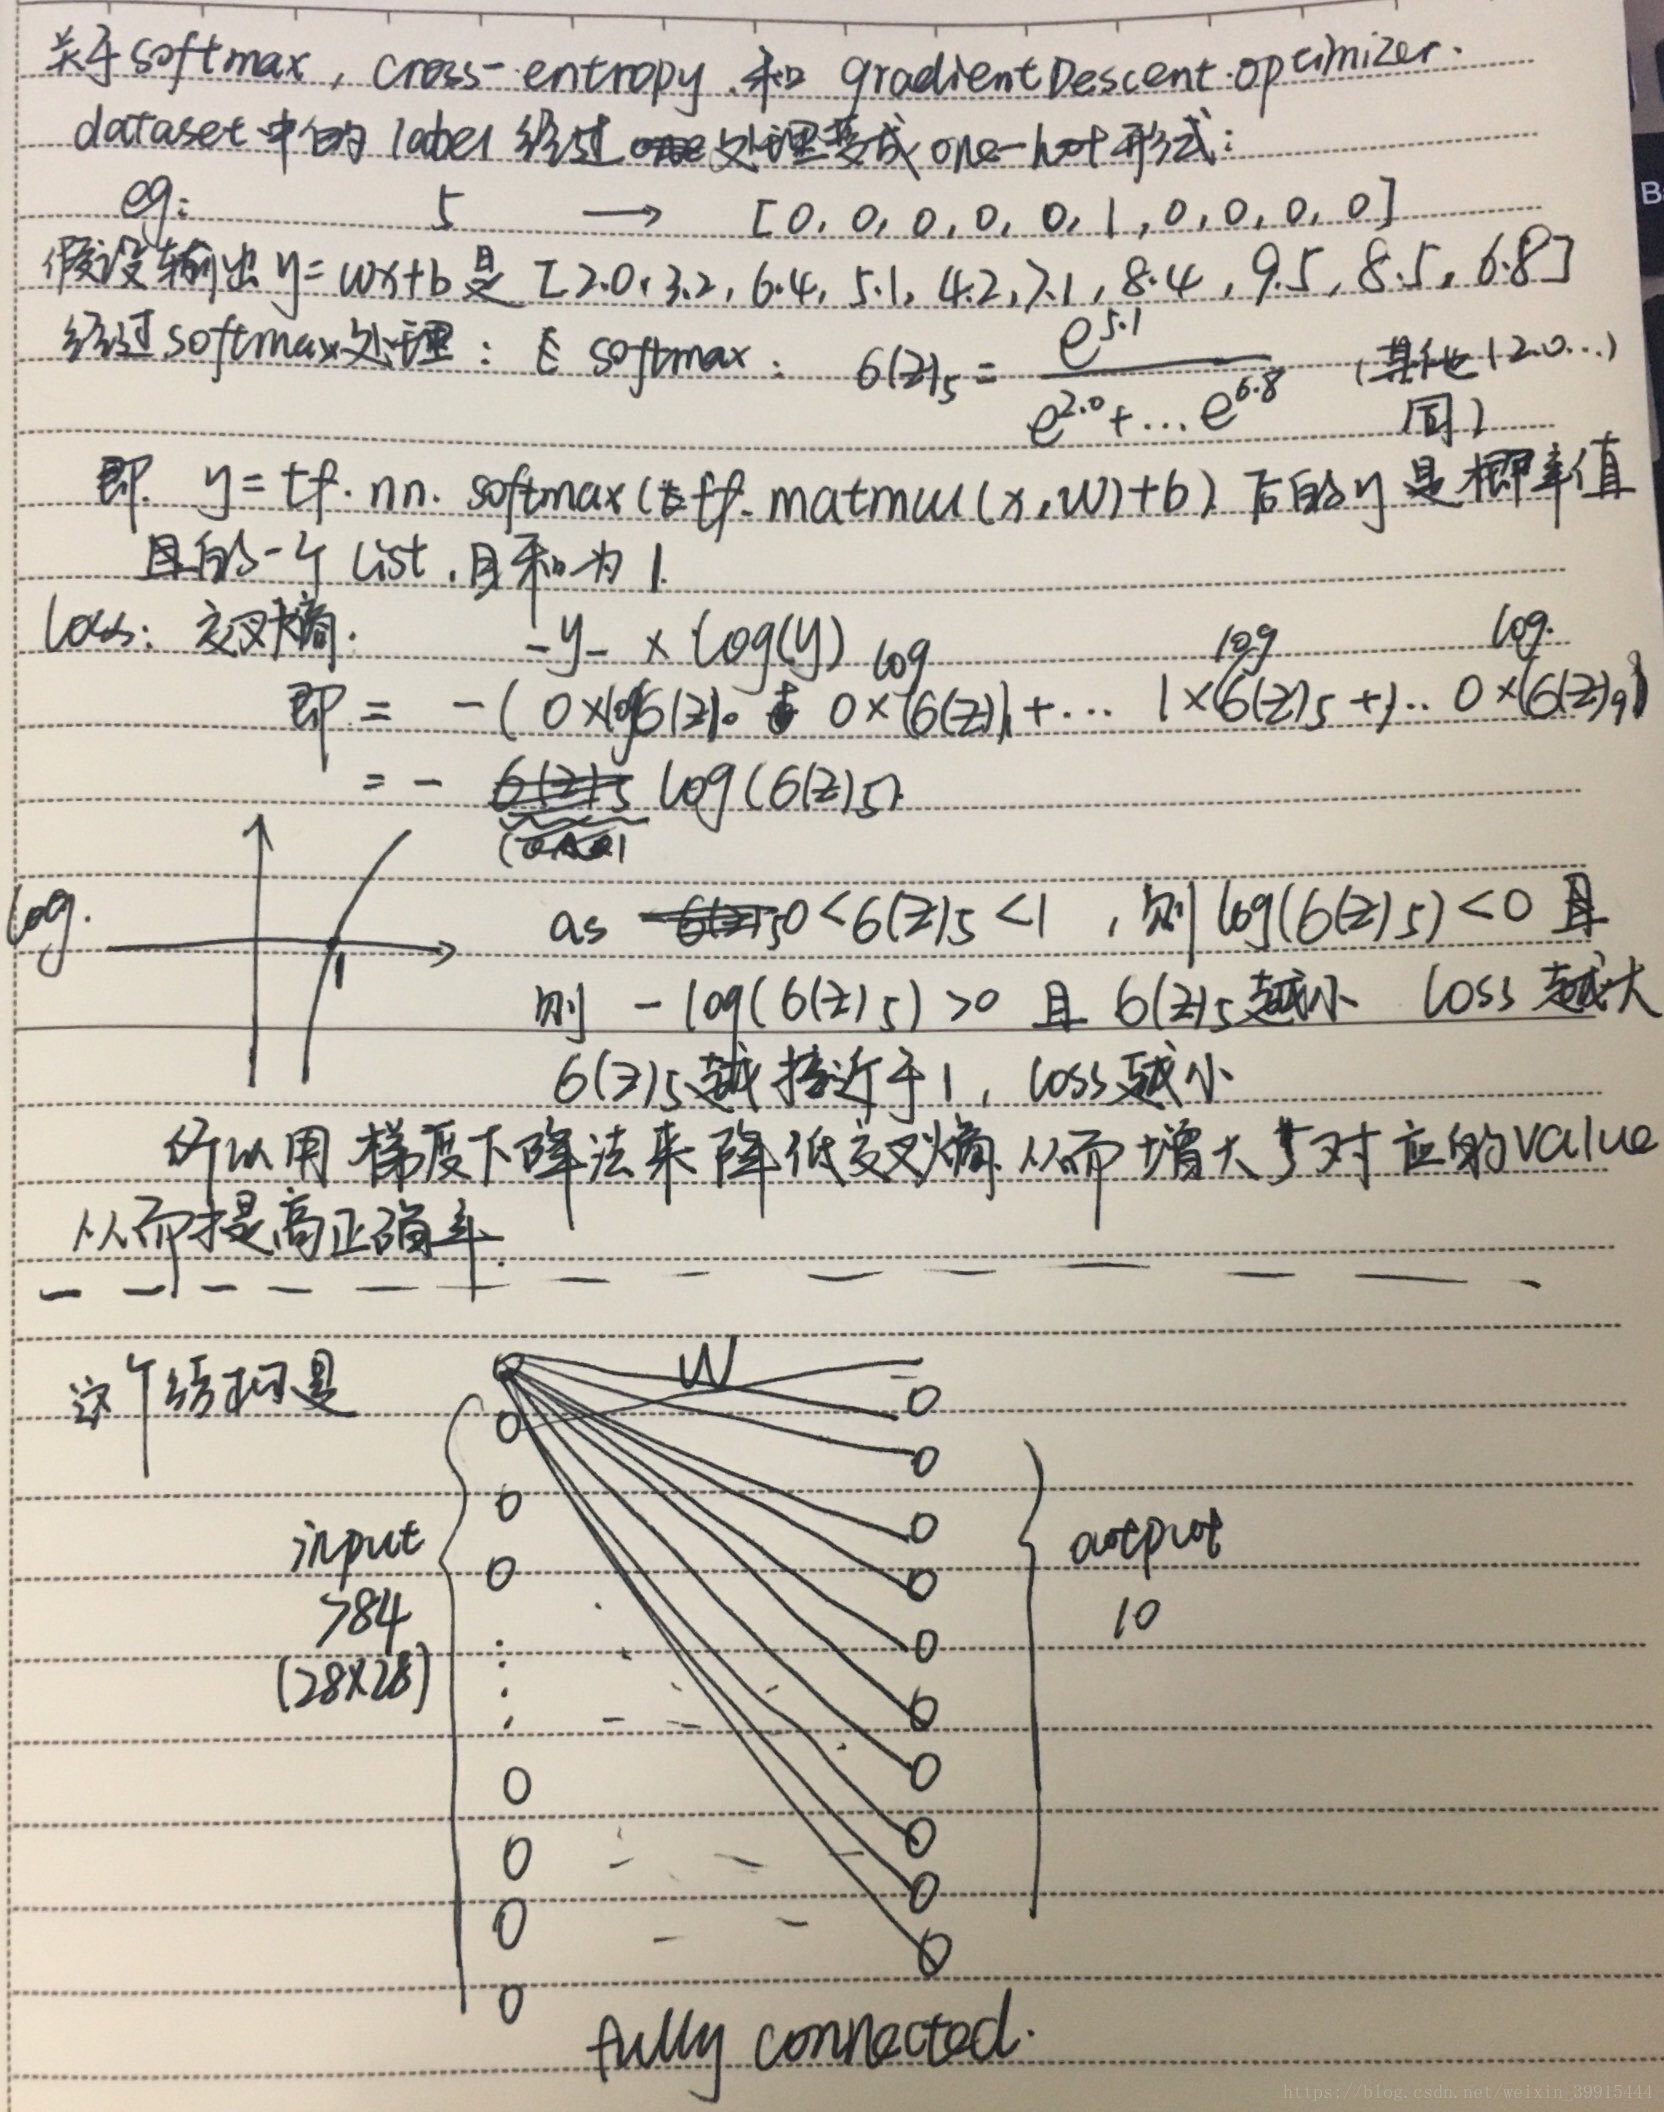 关于softmax, cross-entropy.和 gradientDescent.optimizer.
dataset中的label 经过处理变成one-hot形式:
eg: 5 → [0, 0, 0, 0, 0, 1, 0, 0, 0, 0]
假设输出 y=wx+b 是 [2.0, 3.2, 6.4, 5.1, 4.2, 7.1, 8.4, 9.5, 8.5, 6.8]
经过softmax处理: softmax: 6(z)5 = e^5.1 / e^2.0+...e^6.8 (其他(2.0...)
同)
即. y=tf.nn.softmax(tf.matmul(x,w)+b) 后的y是概率值
且的一个list,且和为1.
loss: 交叉熵. -y_ × log(y)
log log log.
即 = -( 0×log6(z)0 + 0×(6(z))1+... 1×(6(z)5+)... 0×(6(z)9)
= - log(6(z)5)
log.
1
as 0<6(z)5<1 ,则log(6(z)5)<0 且
则 -log(6(z)5)>0 且 6(z)5越小 loss 越大
6(z)5越接近于1, loss越小
所以用梯度下降法来降低交叉熵.从而增大5对应的value
从而提高正确率.
这个结构是
W
input
784
(28×28)
output
10
fully connected.
https://blog.csdn.net/weixin_39915444